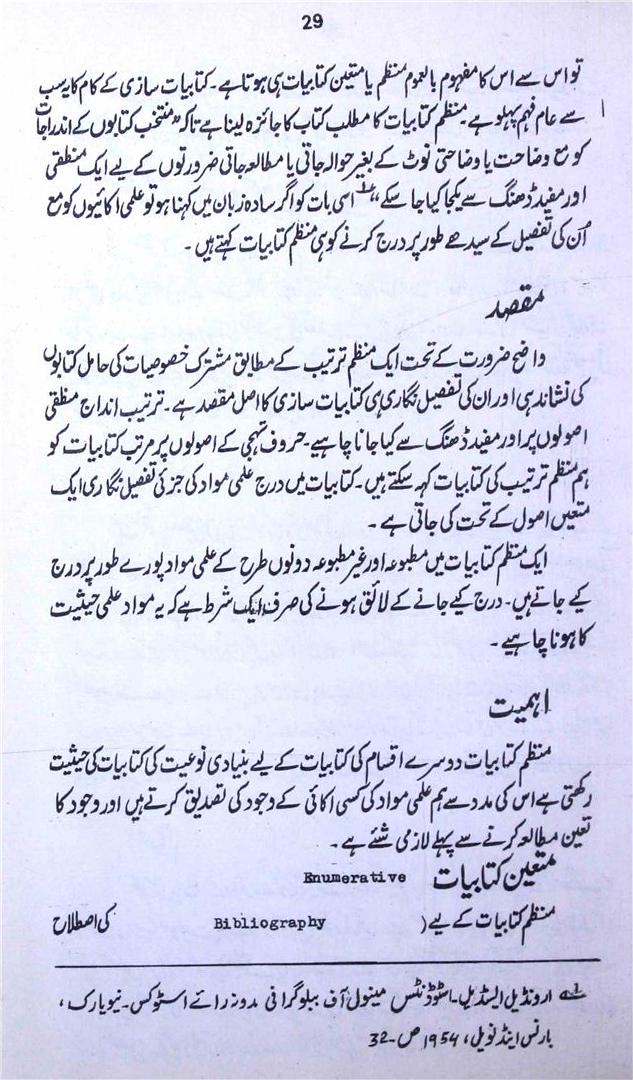 29
تو اس سے اس کا مفہوم بالعموم منظم یا متعین کتابیات ہی ہوتا ہے۔ کتابیات سازی کے کام کا یہ سب
سے عام فہم پہلو ہے۔ منظم کتابیات کا مطلب کتاب کا جائزہ لینا ہے تاکہ "منتخب کتابوں کے اندراجات
کو مع وضاحت یا وضاحتی نوٹ کے بغیر حوالہ جاتی یا مطالعہ جاتی ضرورتوں کے لیے ایک منطقی
اور مفید ڈھنگ سے یکجا کیا جا سکے"؂۱ اسی بات کو اگر سادہ زبان میں کہنا ہو تو علمی اکائیوں کو مع
اُن کی تفصیل کے سیدھے طور پر درج کرنے کو ہی منظم کتابیات کہتے ہیں۔
مقصد
واضح ضرورت کے تحت ایک منظم ترتیب کے مطابق مشترک خصوصیات کی حامل کتابوں
کی نشاندہی اور ان کی تفصیل نگاری ہی کتابیات سازی کا اصل مقصد ہے۔ ترتیب اندراج منطقی
اصولوں پر اور مفید ڈھنگ سے کیا جانا چاہیے۔ حروف تہجی کے اصولوں پر مرتب کتابیات کو
ہم منظم ترتیب کی کتابیات کہہ سکتے ہیں۔ کتابیات میں درج علمی مواد کی جزئی تفصیل نگاری ایک
متعین اصول کے تحت کی جاتی ہے۔
ایک منظم کتابیات میں مطبوعہ اور غیر مطبوعہ دونوں طرح کے علمی مواد پورے طور پر درج
کیے جاتے ہیں۔ درج کیے جانے کے لائق ہونے کی صرف ایک شرط ہے کہ یہ مواد علمی حیثیت
کا ہونا چاہیے۔
اہمیت
منظم کتابیات دوسرے اقسام کی کتابیات کے لیے بنیادی نوعیت کی کتابیات کی حیثیت
رکھتی ہے اس کی مدد سے ہم علمی مواد کی کسی اکائی کے وجود کی تصدیق کرتے ہیں اور وجود کا
تعین مطالعہ کرنے سے پہلے لازمی شئے ہے۔
متعین کتابیات Enumerative
منظم کتابیات کے لیے ( Bibliography کی اصطلاح
؂۱ ارونڈیل ایسڈیل۔ اسٹوڈنٹس مینول آف ببلوگرافی مدونہ رائے اسٹوکس۔ نیویارک،
بارنس اینڈ نوبل، 1954 ص-32